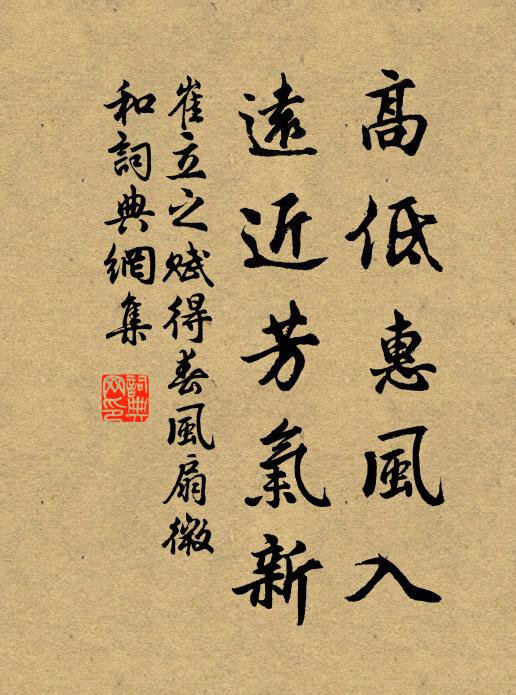 高低惠風入
遠近芳氣新
崔立之賦得春風扇微
和詞典網集
詞典
网印